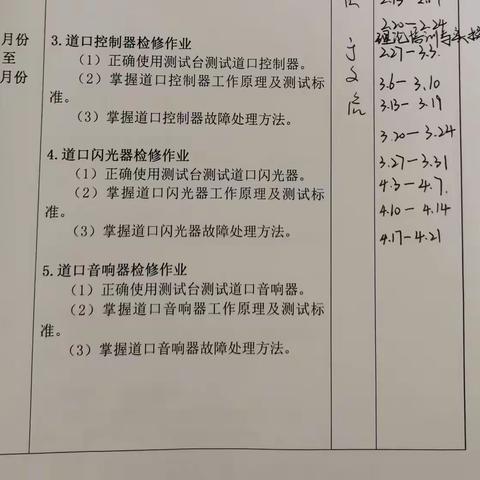 月份
至
月份
3.道口控制器检修作业
（1）正确使用测试台测试道口控制器。
（2）掌握道口控制器工作原理及测试标
准。
（3）掌握道口控制器故障处理方法。
4.道口闪光器检修作业
（1）正确使用测试台测试道口闪光器。
（2）掌握道口闪光器工作原理及测试标
准。
（3）掌握道口闪光器故障处理方法。
5.道口音响器检修作业
（1）正确使用测试台测试道口音响器。
（2）掌握道口音响器工作原理及测试标
准。
（3）掌握道口音响器故障处理方法。
于
文
2.20—2.24
理论培训与实
2.27—3.3
3.6—3.10
3.13—3.19
3.20—3.24
3.27—3.31
4.3—4.7
4.10—4.14
4.17—4.21